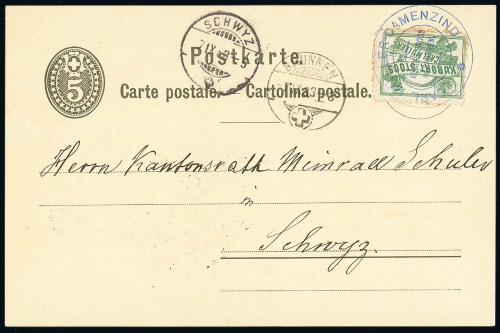 SCHWYZ
Postkarte.
Carte postale. Cartolina postale.
5
BRUNNEN
CAMENZIND
KURORT STOOS
Herrn Kantonsrath Meinrad Schuler
in
Schwyz.